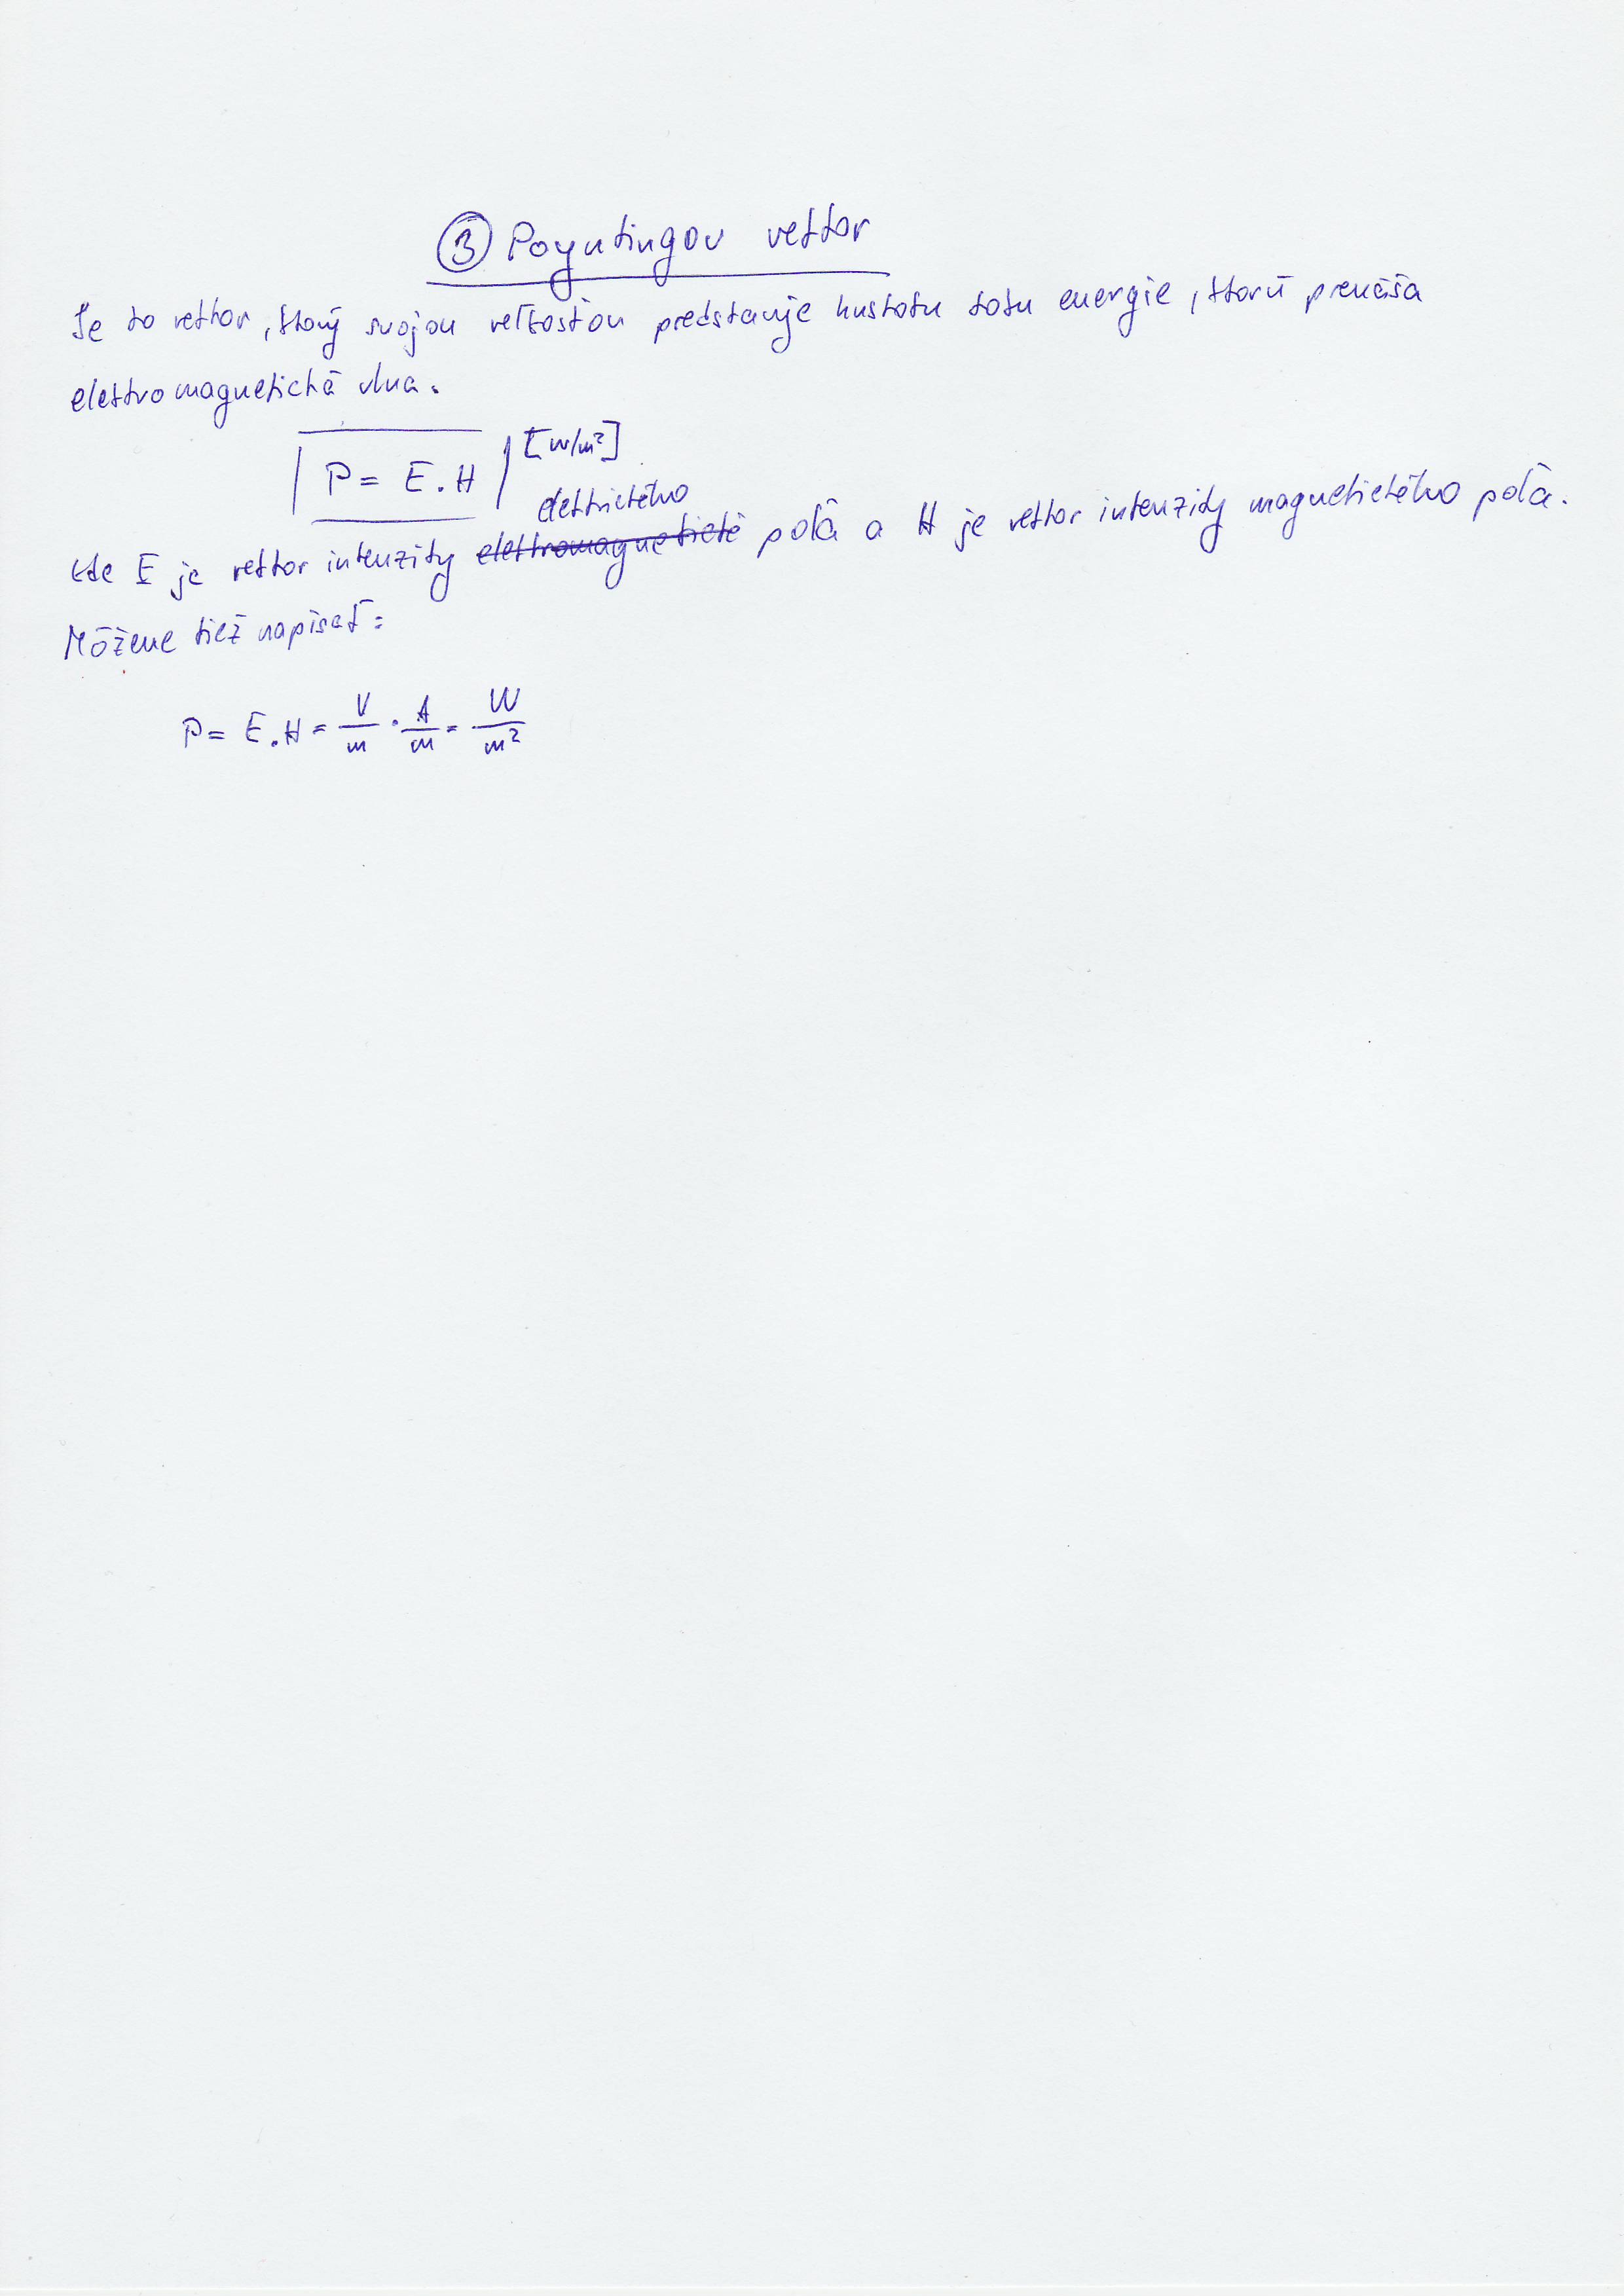 ③ Poyntingov vektor
Je to vektor, ktorý svojou veľkosťou predstavuje hustotu toku energie, ktorú prenáša
elektromagnetická vlna.
P = E.H [W/m²]
elektrického
kde E je vektor intenzity elektromagnetické poľa a H je vektor intenzity magnetického poľa.
Môžene tiež napísať:
P = E.H = V/m · A/m = W/m²